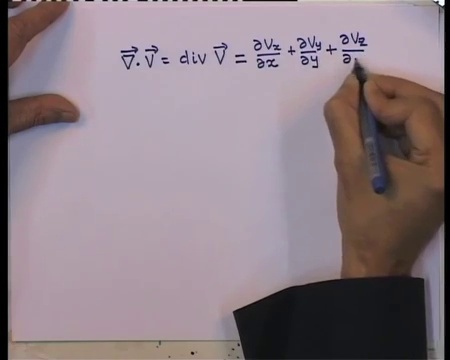 ∇⃗.V⃗ = div V⃗ = ∂Vx/∂x + ∂Vy/∂y + ∂Vz/∂